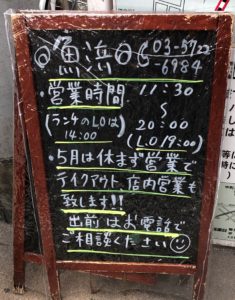 魚浜 03-5722
-6984
・営業時間 11:30
(ランチのLOは 〜
14:00) 20:00
(LO19:00)
・5月は休まず営業で
テイクアウト、店内営業も
致します!!
出前はお電話で
ご相談ください